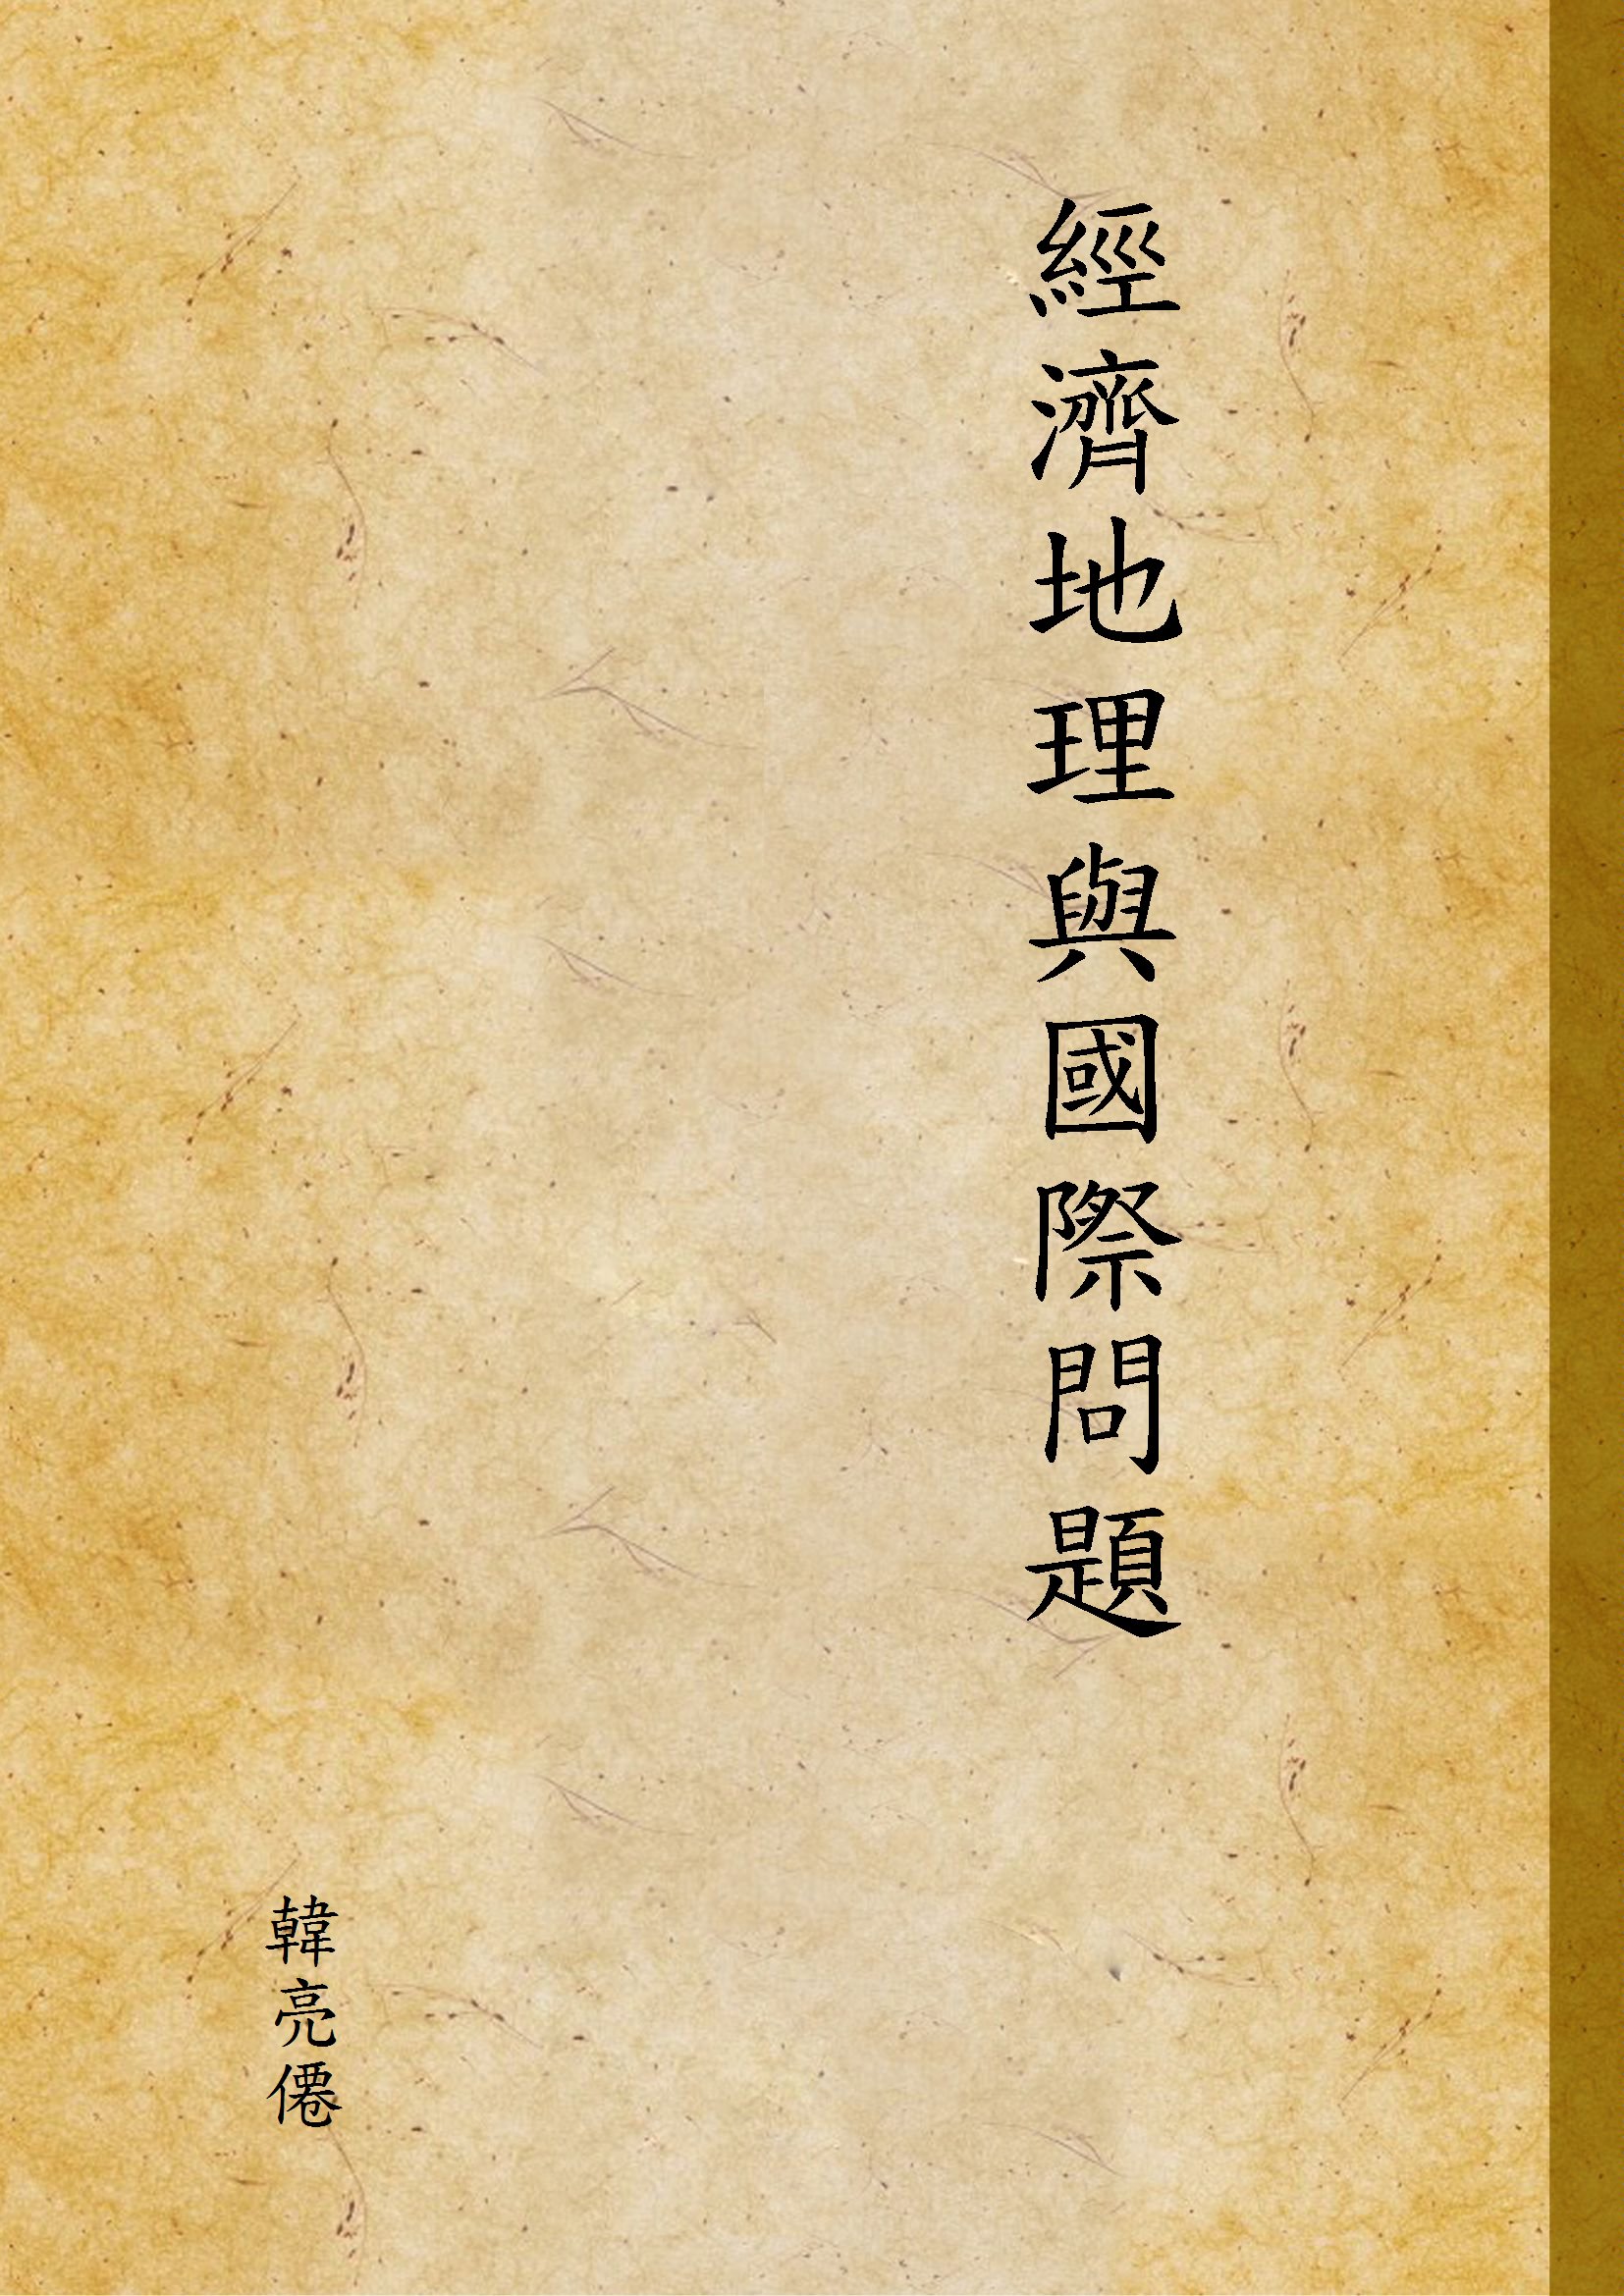 經濟地理與國際問題
韓亮僊